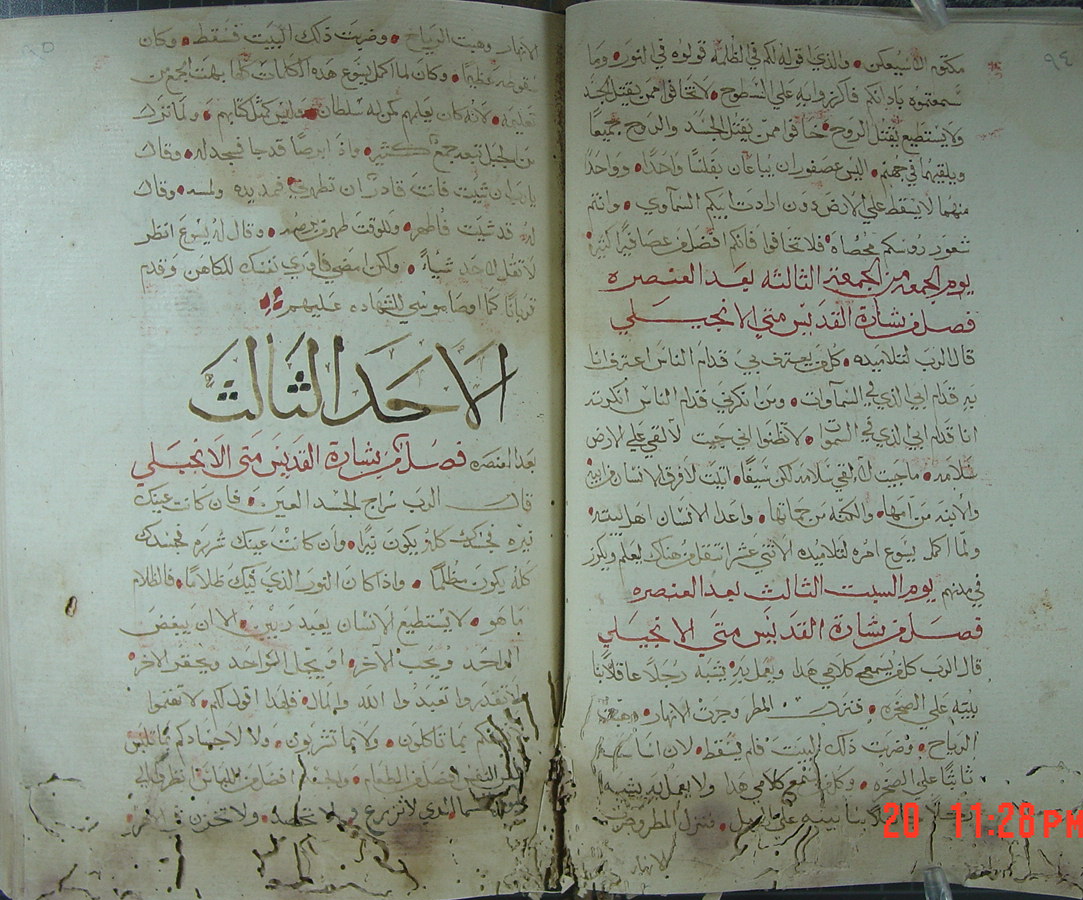 ٩٤
مكتوم الا سيعلن والذي اقوله لكم في الظلمة قولوه في النور وما
سمعتموه باذانكم فاكرزوا به علي السطوح لا تخافوا ممن يقتل الجسد
ولا يستطيع يقتل الروح خافوا ممن يقتل الجسد والروح جميعًا
ويلقيهما في جهنم اليس عصفوران يباعان بفلسًا واحدًا وواحدًا
منهما لا يسقط علي الارض دون ارادت ابيكم السماوي وانتم
شعور روسكم محصاه فلا تخافوا فانكم افضل من عصافير كثيرة
يوم الجمعه من الجمعة الثالثه بعد العنصره
فصل من بشارة القديس متي الانجيلي
قال الرب لتلاميذه كلمن يعترف بي قدام الناس اعترف انا
به قدام ابي الذي في السماوات ومن انكرني قدام الناس انكرته
انا قدام ابي الذي في السموا لا تظنوا اني جيت لالقي علي الارض
سلامه ما جيت لالقي سلامه لكن سيفًا اتيت لافرق الانسان من ابيه
والابنه من امها والكنه من حماتها واعدا الانسان اهل بيته
ولما اكمل يسوع امره لتلاميذه الاثني عشر انتقل من هناك ليعلم ويكرز
في مدنهم يوم السبت الثالث بعد العنصره
فصل من بشارة القديس متي الانجيلي
قال الرب كلمن يسمع كلامي هذا ويعمل به يشبه رجلًا عاقلًا بنا
بيته علي الصخره فنزل المطر وجرت الانهار وهبت
الرياح وضربت ذلك البيت فلم يسقط لان اساسه
ثابتًا علي الصخره وكلمن يسمع كلامي هذا ولا يعمل به يشبه
بنا بيته علي الرمل فنزل المطر وجرت
الانهار
الانهار وهبت الرياح وضربت ذلك البيت فسقط وكان
سقوطه عظيمًا وكان لما اكمل يسوع هذه الكلمات كلها بهت الجمع من
تعليمه لانه كان يعلمهم كمن له سلطان وليس كمثل كتابهم ولما نزل
من الجبل تبعه جمع كثير واذ ابرصًا قد جا فسجد له وقال
يارب ان شيت فانت قادر ان تطهرني فمد يده ولمسه وقال
له قد شيت فاطهر وللوقت طهر من برصه وقال له يسوع انظر
لا تقل لاحد شياً ولكن امضي فاوري نفسك للكاهن وقدم
قربانًا كما اوصا موسي للشهاده عليهم
الاحد الثالث
بعد العنصره فصل من بشارة القديس متي الانجيلي
قال الرب سراج الجسد العين فان كانت عينك
نيره فجسدك كله يكون نيرًا وان كانت عينك شريره فجسدك
كله يكون مظلمًا واذا كان النور الذي فيك ظلامًا فالظلام
ما هو لا يستطيع الانسان يعبد ربين الا ان يبغض
الواحد ويحب الاخر او يجل الواحد ويحقر الاخر
لا تقدروا تعبدوا الله والمال فلهذا اقول لكم لا تهتموا
بما تاكلون ولا بما تشربون ولا لاجسادكم ما تلبس
النفس افضل من الطعام والجسد افضل من اللباس انظروا الي
السما الذي لا تزرع ولا تحصد ولا تخزن في الاهرا
20 11:28 PM